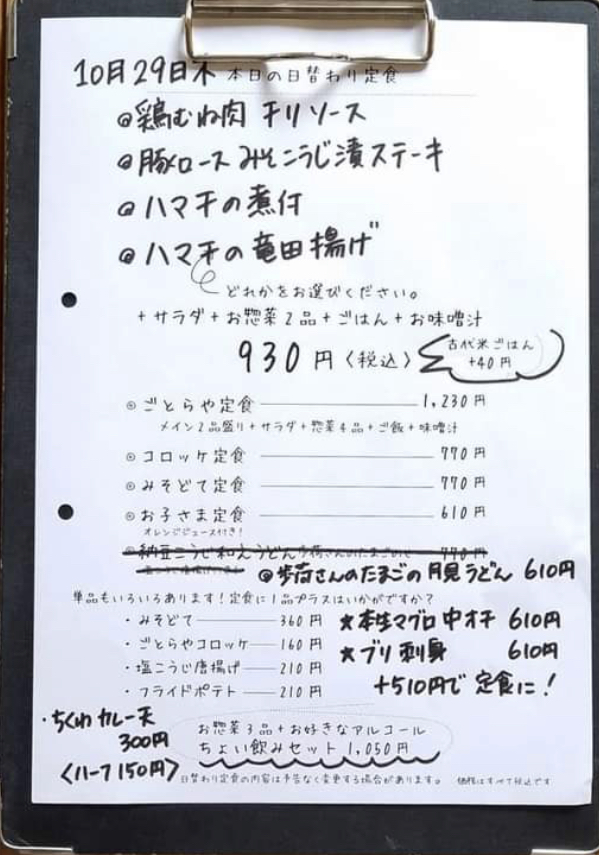 10月29日木 本日の日替わり定食
◎鶏むね肉 チリソース
◎豚ロース みそこうじ漬ステーキ
◎ハマチの煮付
◎ハマチの竜田揚げ
どれかをお選びください。
+サラダ+お惣菜2品+ごはん+お味噌汁
930円〈税込〉
古代米ごはん
+40円
◎ごとらや定食 1,230円
メイン2品盛り+サラダ+惣菜4品+ご飯+味噌汁
◎コロッケ定食 770円
◎みそどて定食 770円
◎お子さま定食 610円
オレンジジュース付き!
◎納豆こうじ和えうどん 歩荷さんのたまごのせ 770円
◎歩荷さんのたまごの月見うどん 610円
単品もいろいろあります!定食に1品プラスはいかがですか?
・みそどて 360円
・ごとらやコロッケ 160円
・塩こうじ唐揚げ 210円
・フライドポテト 210円
★本生マグロ中オチ 610円
★ブリ刺身 610円
+510円で定食に!
・ちくわカレー天
300円
〈ハーフ150円〉
お惣菜3品+お好きなアルコール
ちょい飲みセット 1,050円
日替わり定食の内容は予告なく変更する場合があります。 価格はすべて税込です